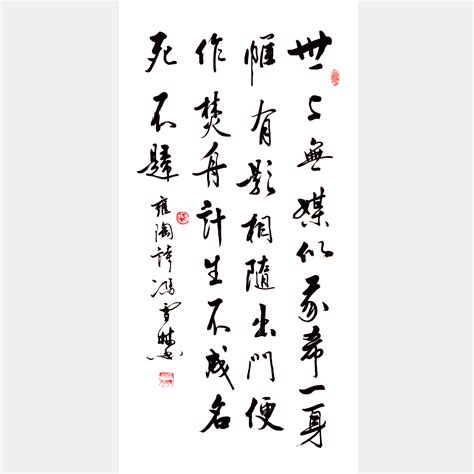 世上無媒似我希一身
惟有影相隨出門便
作焚舟計生不成名
死不歸
雍陶詩馮雪